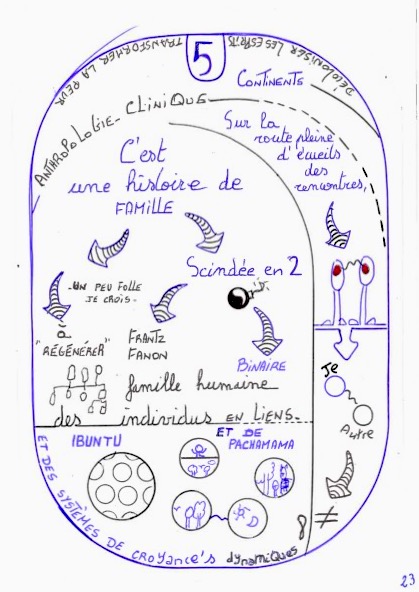 TRANSFORMER LA PEUR
5
DÉCOLONISER LES ESPRITS
CONTINENTS
ANTHROPOLOGIE-CLINIQUE
Sur la
route pleine
d'écueils
des
rencontres,
C'est
une histoire de
FAMILLE
Scindée en 2
-UN PEU FOLLE
JE CROIS-
"RÉGÉNÉRER"
FRANTZ
FANON
BINAIRE
famille humaine
des individus EN LIENS-
Je
Autre
≠
IBUNTU
ET DE
PACHAMAMA
ET DES SYSTÈMES DE CROYANCE'S dynamiques
23